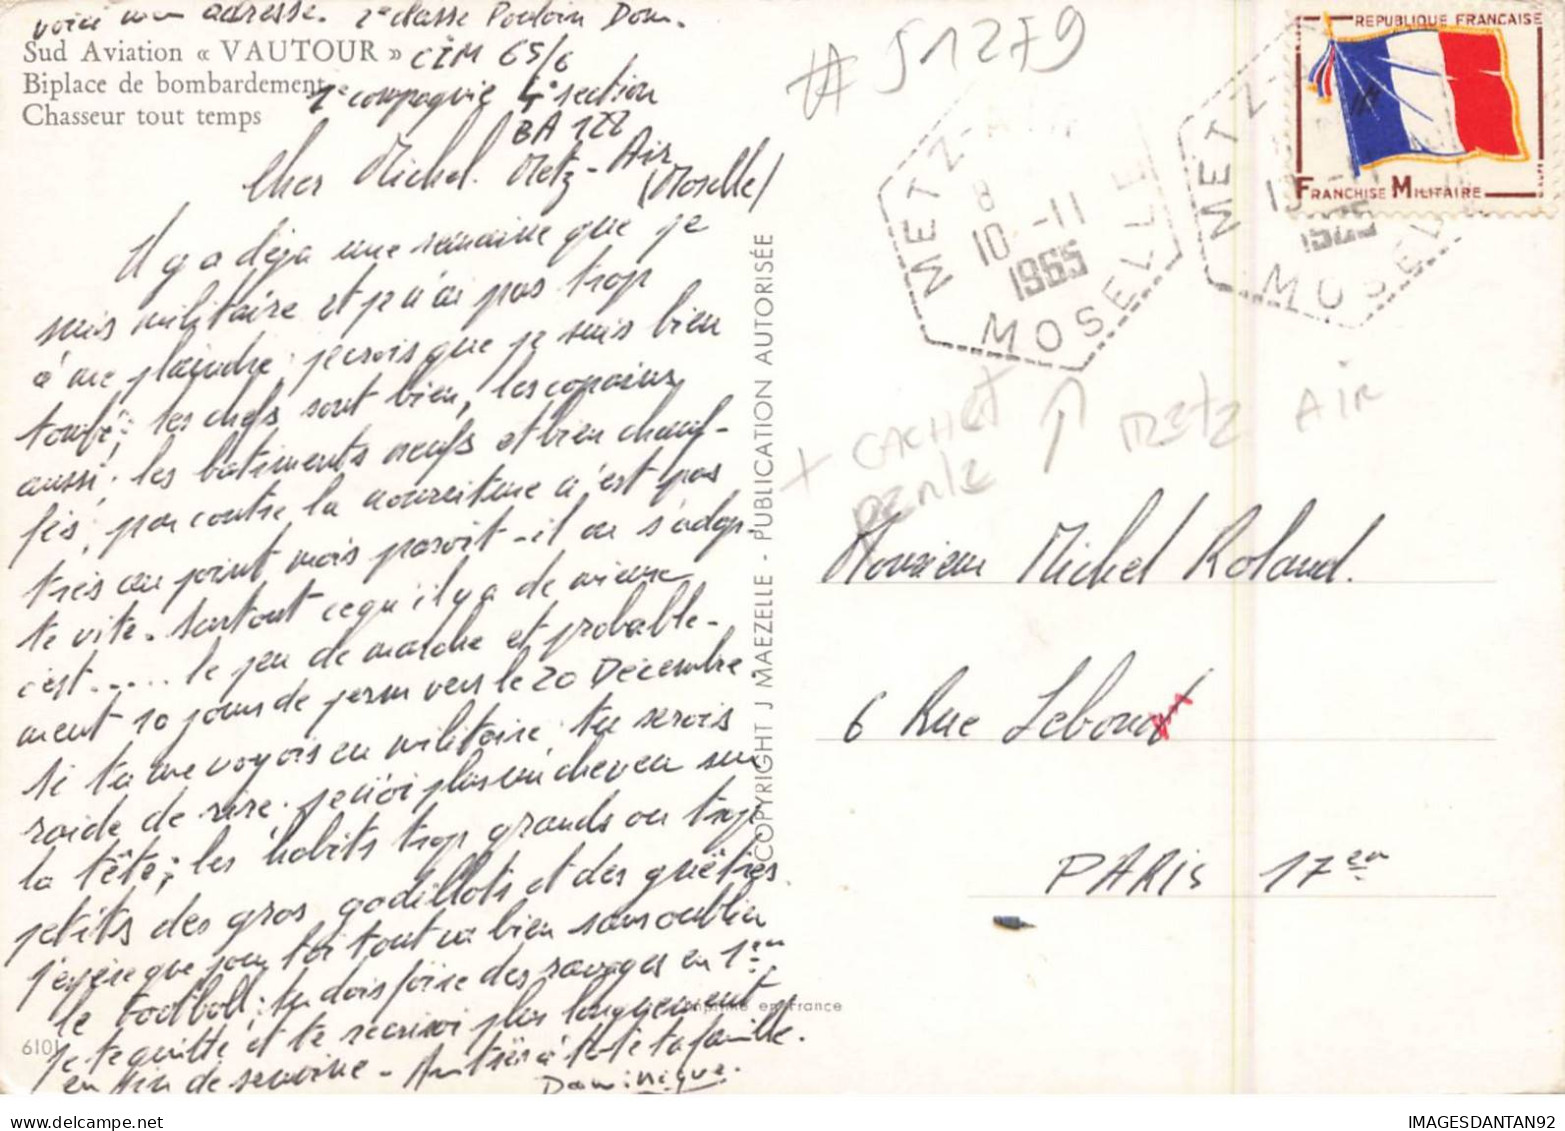 voici mon adresse. 2e classe Poulain Dom.
Sud Aviation « VAUTOUR »
CIM 65/6
Biplace de bombardement
Chasseur tout temps
2e compagnie 4e section
BA 122
Cher Michel. Metz-Air
(Moselle)
Il y a déjà une semaine que je
suis militaire et je n'ai pas trop
à me plaindre; je crois que je suis bien
tombé; les chefs sont bien, les copains
aussi; les bâtiments neufs et bien chauf-
fés; par contre la nourriture n'est pas
très au point mais paroit-il on s'adap-
te vite. Surtout ce qu'il y a de mieux
c'est..... le jeu de marche et probable-
ment 10 jours de perm vers le 20 Décembre
si tu me voyais en militaire tu serais
raide de rire; je n'ai plus un cheveu sur
la tête; les habits trop grands ou trop
petits des gros godillots et des guêtres.
J'espère que pour toi tout va bien sans oublier
le football; tu dois faire des ravages en 1ère
je te quitte et te récrirai plus longuement
en fin de semaine - Amitiés à toi et ta famille.
Dominique.
6101
COPYRIGHT J MAEZELLE - PUBLICATION AUTORISÉE
Imprimé en France
# 51279
METZ-AIR
8
10 -11
1965
MOSELLE
METZ-
MOSELLE
REPUBLIQUE FRANCAISE
FRANCHISE MILITAIRE
+ CACHET
PERLE
METZ AIR
Monsieur Michel Roland.
6 Rue Lebout
PARIS 17em
IMAGESDANTAN92